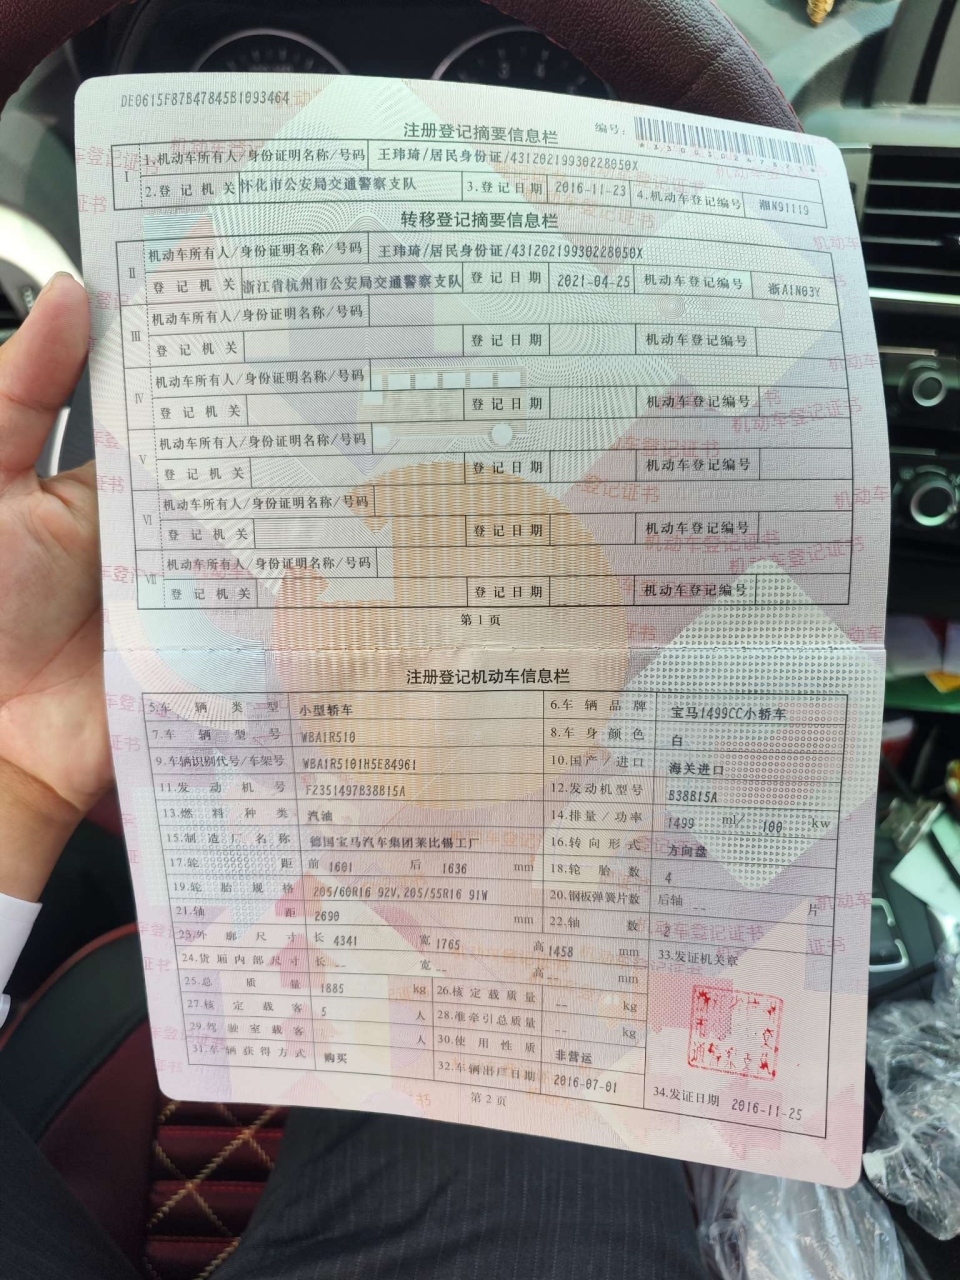 DE0615F87B47845B1093464
注册登记摘要信息栏
编号:
I
1.机动车所有人/身份证明名称/号码 王玮琦/居民身份证/43120219930228050X
2.登记机关 怀化市公安局交通警察支队 3.登记日期 2016-11-23 4.机动车登记编号 湘N91119
转移登记摘要信息栏
II
机动车所有人/身份证明名称/号码 王玮琦/居民身份证/43120219930228050X
登记机关 浙江省杭州市公安局交通警察支队 登记日期 2021-04-25 机动车登记编号 浙A1N03Y
III
机动车所有人/身份证明名称/号码
登记机关 登记日期 机动车登记编号
IV
机动车所有人/身份证明名称/号码
登记机关 登记日期 机动车登记编号
V
机动车所有人/身份证明名称/号码
登记机关 登记日期 机动车登记编号
VI
机动车所有人/身份证明名称/号码
登记机关 登记日期 机动车登记编号
VII
机动车所有人/身份证明名称/号码
登记机关 登记日期 机动车登记编号
第1页
注册登记机动车信息栏
5.车辆类型 小型轿车 6.车辆品牌 宝马1499CC小轿车
7.车辆型号 WBA1R510 8.车身颜色 白
9.车辆识别代号/车架号 WBA1R5101H5E84961 10.国产/进口 海关进口
11.发动机号 F2351497B38B15A 12.发动机型号 B38B15A
13.燃料种类 汽油 14.排量/功率 1499 ml/ 100 kw
15.制造厂名称 德国宝马汽车集团莱比锡工厂 16.转向形式 方向盘
17.轮距 前 1601 后 1636 mm 18.轮胎数 4
19.轮胎规格 205/60R16 92V,205/55R16 91W 20.钢板弹簧片数 后轴 -- 片
21.轴距 2690 mm 22.轴数 2
23.外廓尺寸 长 4341 宽 1765 高 1458 mm 33.发证机关章
24.货厢内部尺寸 长 -- 宽 -- 高 -- mm
25.总质量 1885 kg 26.核定载质量 -- kg
27.核定载客 5 人 28.准牵引总质量 -- kg
29.驾驶室载客 人 30.使用性质 非营运
31.车辆获得方式 购买 32.车辆出厂日期 2016-07-01 34.发证日期 2016-11-25
第2页